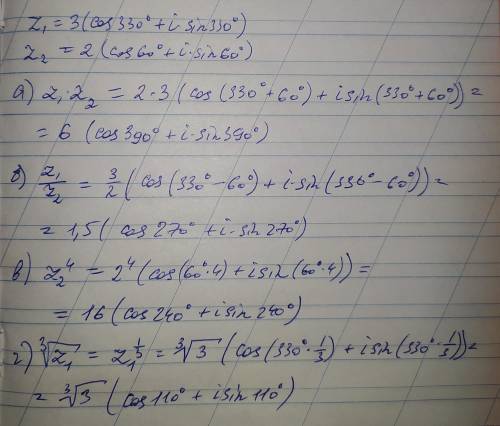 z₁ = 3(cos330° + i·sin330°)
z₂ = 2(cos60° + i·sin60°)
а) z₁·z₂ = 2·3 (cos(330°+60°) + i sin(330°+60°)) =
= 6 (cos390° + i·sin390°)
б) z₁/z₂ = 3/2 (cos(330°-60°) + i·sin(330°-60°)) =
= 1,5 (cos270° + i·sin270°)
в) z₂⁴ = 2⁴ (cos(60°·4) + i sin(60°·4)) =
= 16 (cos240° + i sin240°)
г) ∛z₁ = z₁^(1/3) = ∛3 (cos(330°·1/3) + i sin(330°·1/3)) =
= ∛3 (cos110° + i sin110°)